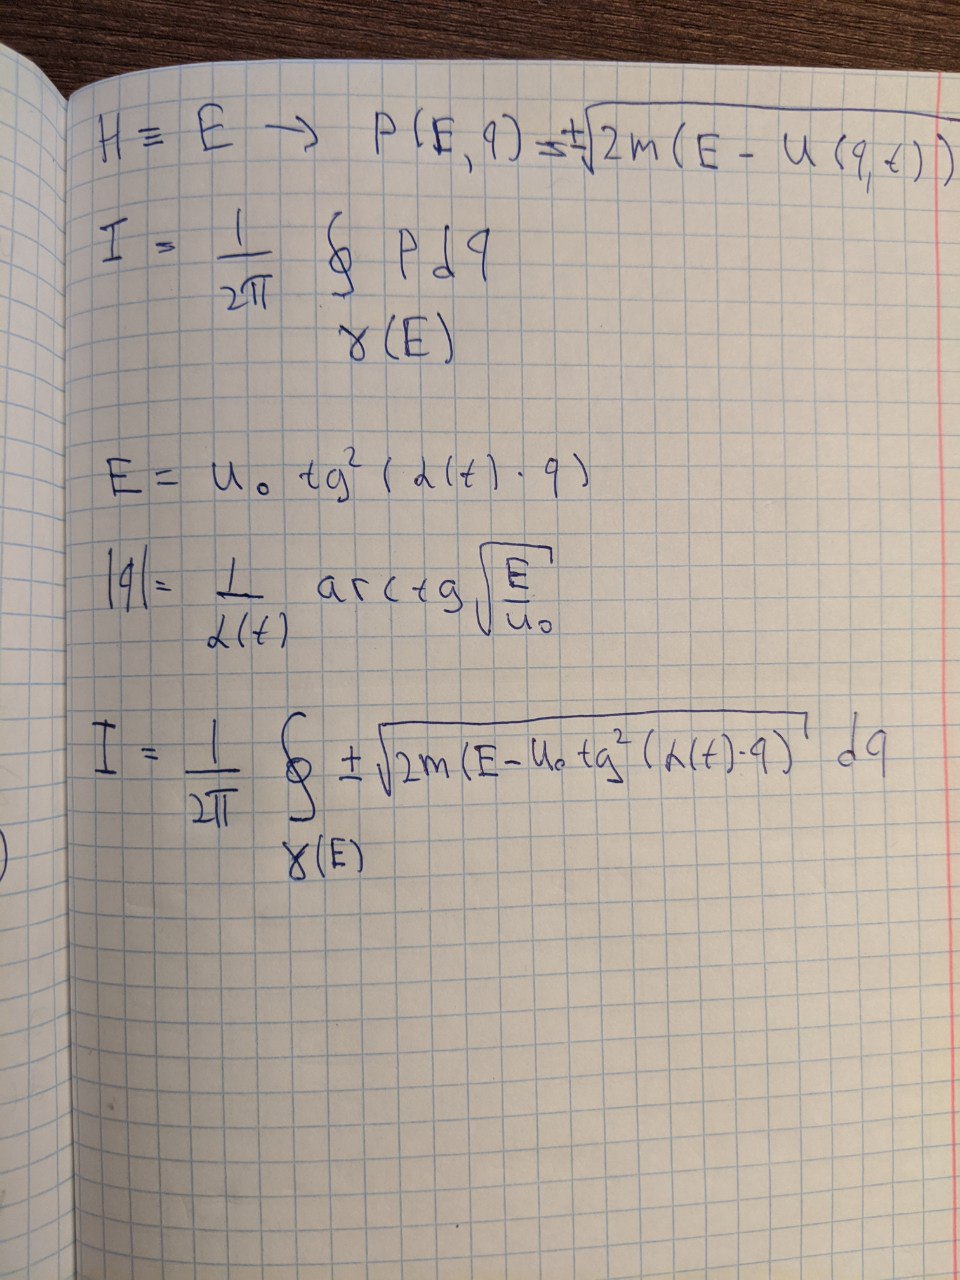 H ≡ E → P(E, q) = ±√(2m(E - U(q,t)))
I = 1/2π ∮ P dq
γ(E)
E = U₀ tg² (α(t) · q)
|q| = 1/α(t) arctg √(E/U₀)
I = 1/2π ∮ ± √(2m(E - U₀ tg² (α(t)·q)) dq
γ(E)
)